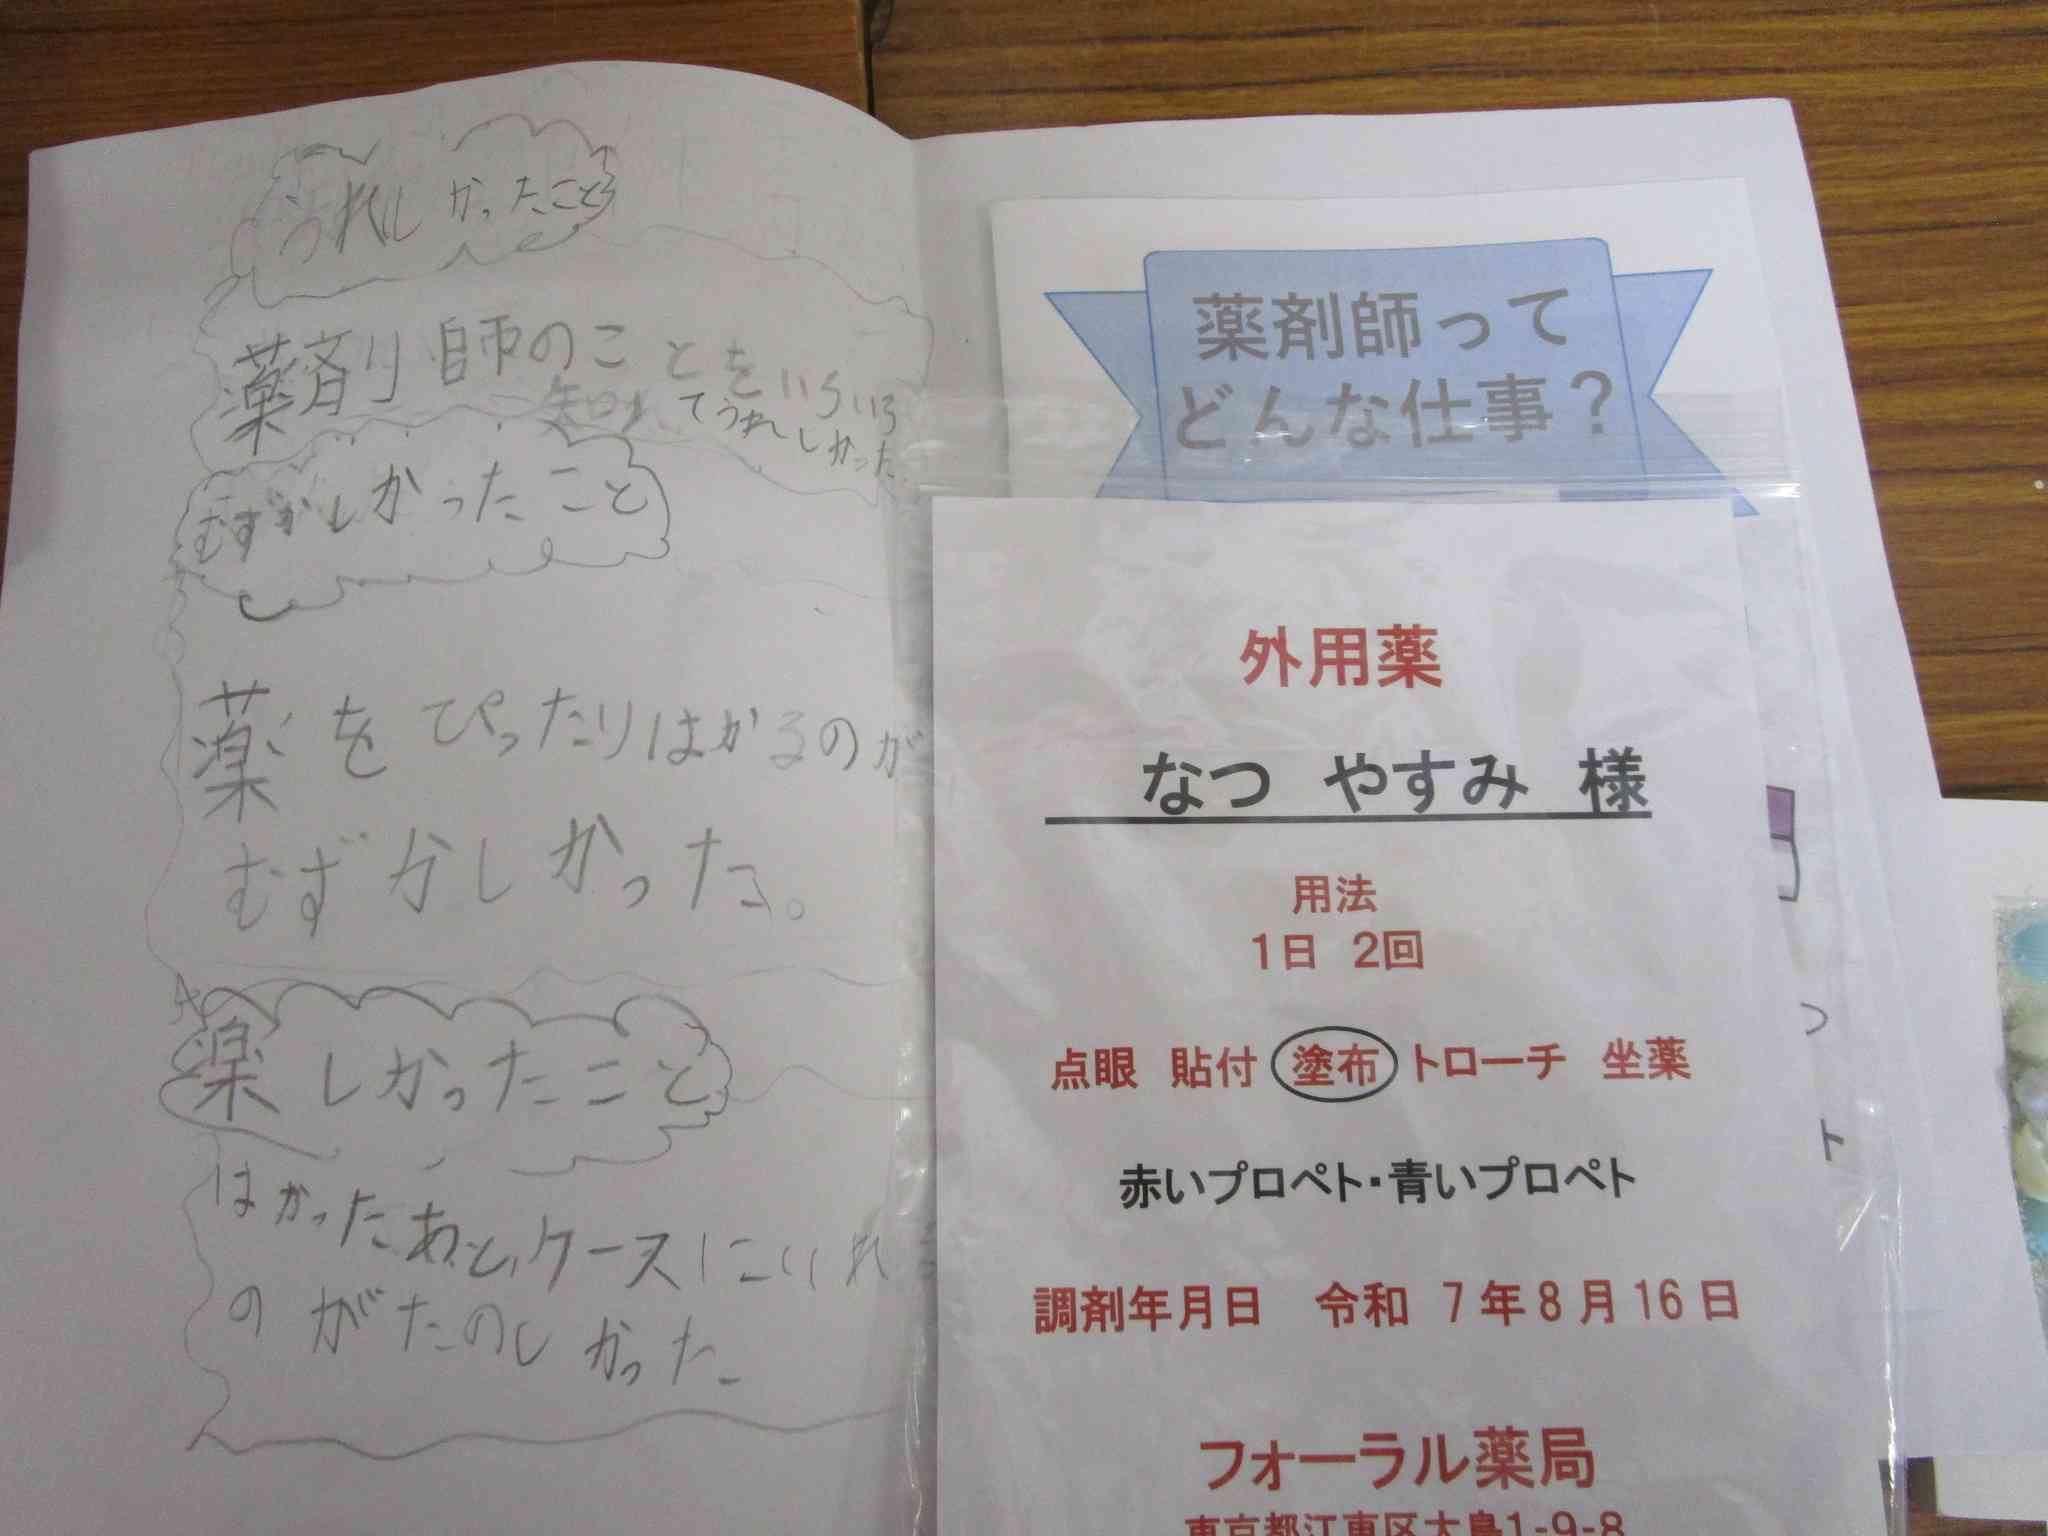 うれしかったこと
薬剤師のことをいろいろ
知ってうれしかった
むずかしかったこと
薬をぴったりはかるのが
むずかしかった。
楽しかったこと
はかったあと、ケースにいれ
のがたのしかった
薬剤師って
どんな仕事？
外用薬
なつ やすみ 様
用法
1日 2回
点眼 貼付 塗布 トローチ 坐薬
赤いプロペト・青いプロペト
調剤年月日 令和 7年8月16日
フォーラル薬局
東京都江東区大島1-9-8
つ
ト